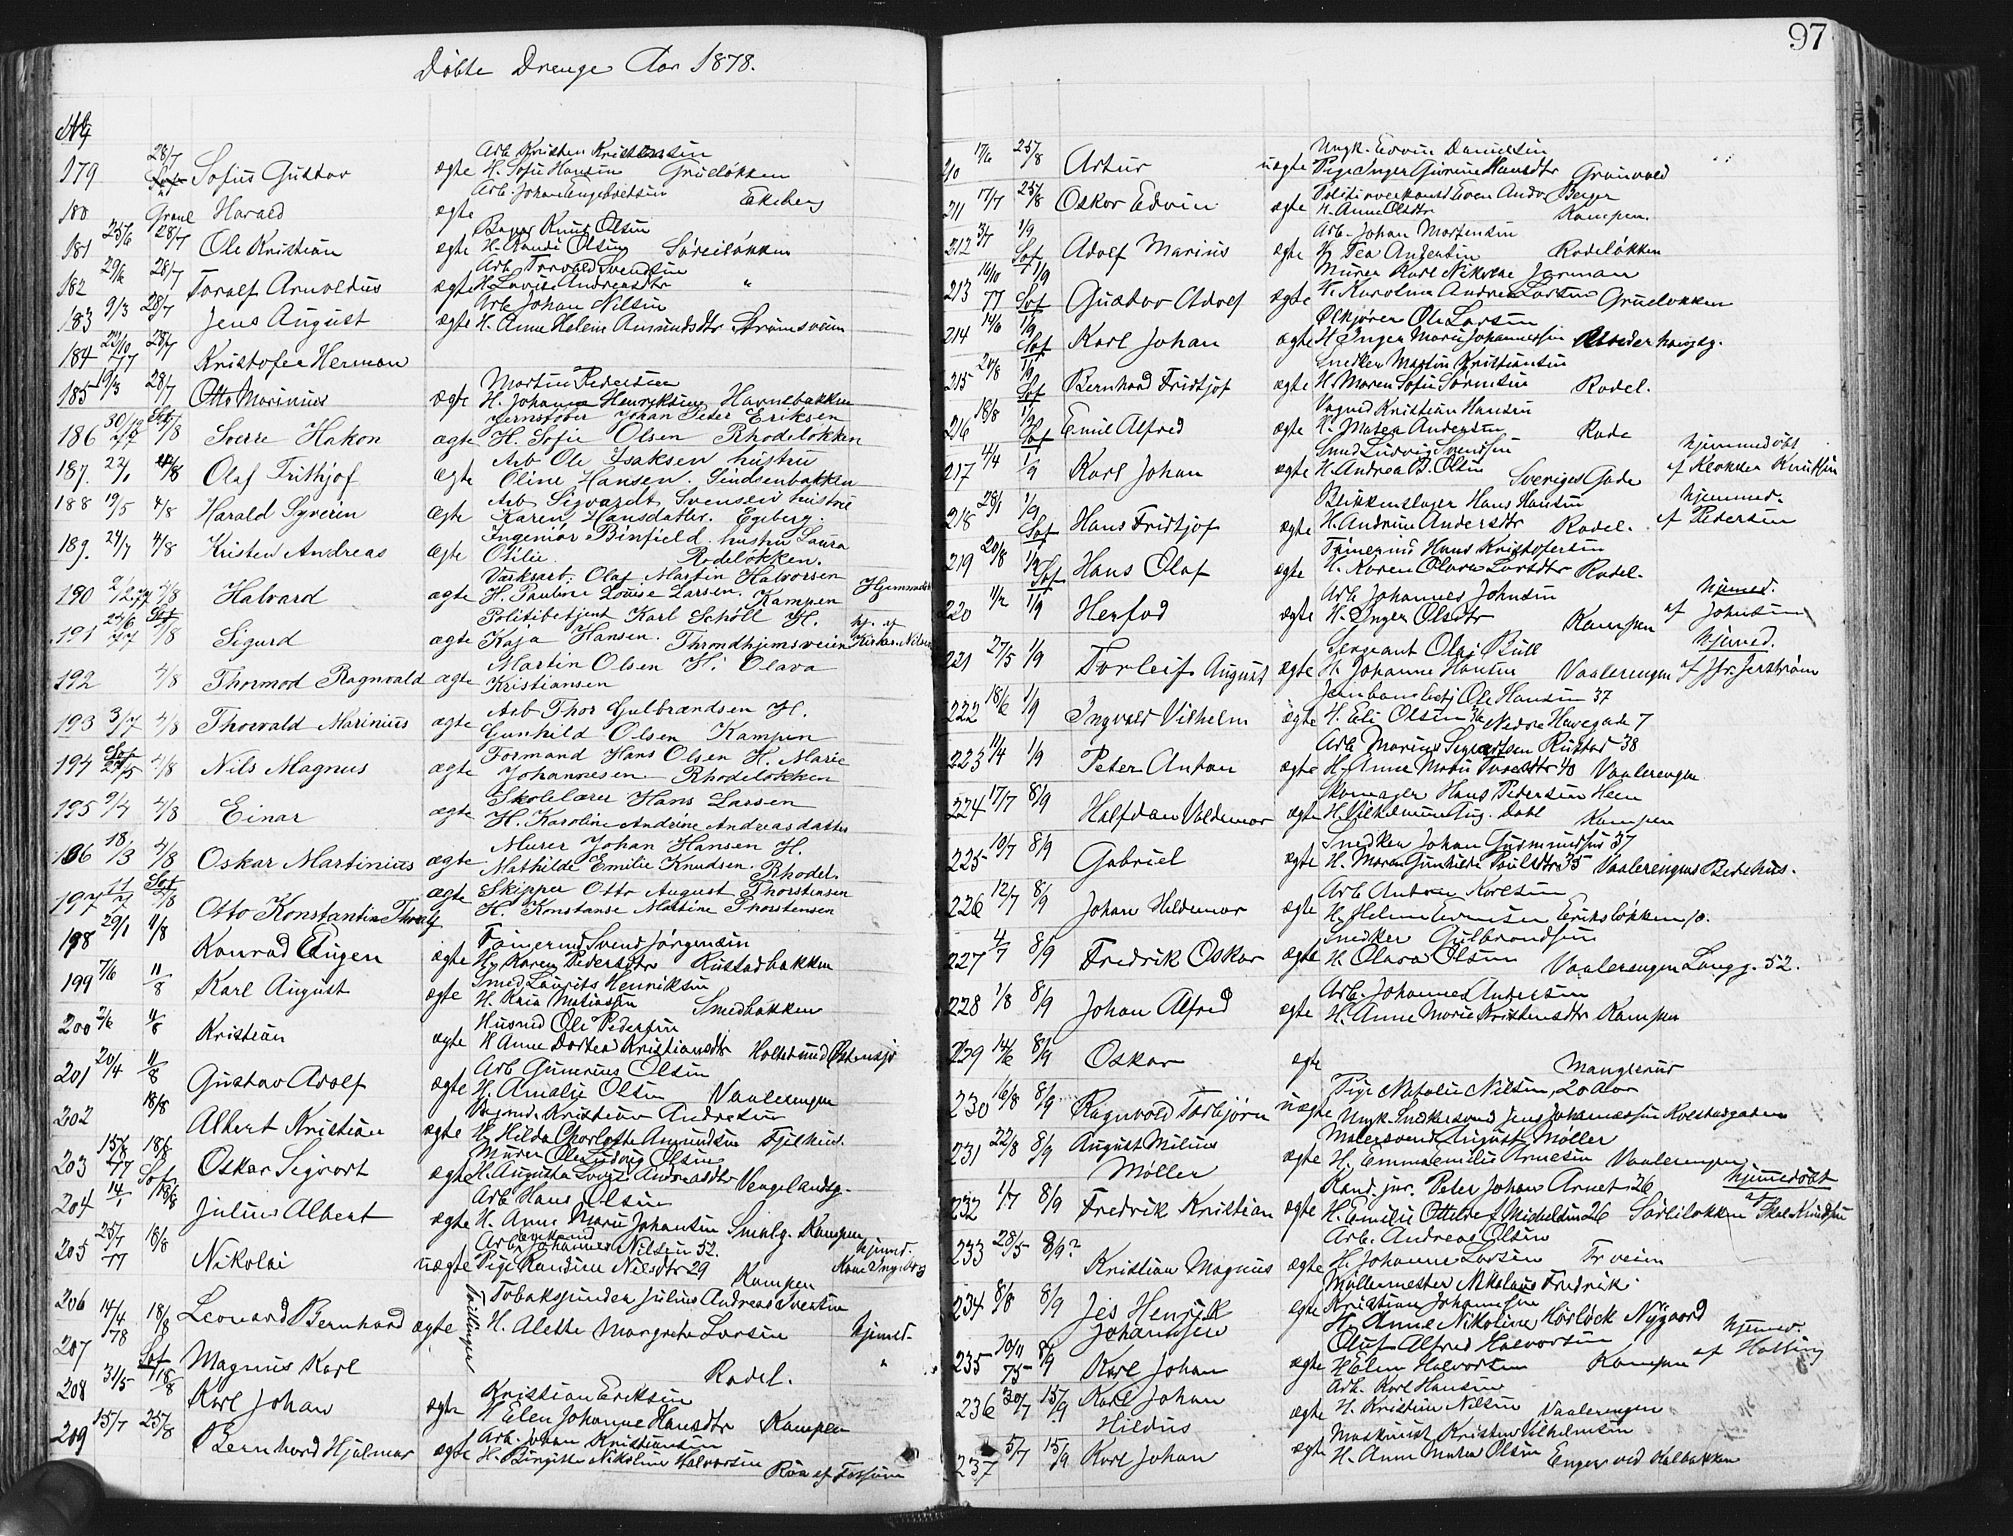 Døbte Drenge Aar 1878.
97
No
179 28/7 Sofus Gustav ægte Arb. Kristen Kristensen
H. Sofie Hansen Grueløkken
180 Grønl Harald ægte Arb. Johan Engebretsen Ekeberg
181 25/6 28/7 Ole Kristian ægte Bager Knut Olsen
H. Randi Olsen Sørliløkken
182 29/6 28/7 Toralf Arnoldus ægte Arb. Torvald Svendsen
H. Lovise Andreasdtr "
183 9/3 28/7 Jens August ægte Arb Johan Nilsen
H. Anne Helene Amundsdtr Strømsveien
184 23/10 77 28/7 Kristofer Herman
185 19/3 28/7 Otto Marinius ægte Martin Pedersen
H. Johanne Henriksen Havnebakken
186 30/12 77 4/8 Sverre Hakon ægte Jernstøber Johan Peter Eriksen
H. Sofie Olsen Rhodeløkken
187. 22/1 4/8 Olaf Frithjof ægte Arb Ole Isaksen hustru
Oline Hansen. Lindsenbakken
188 19/5 4/8 Harald Syverin ægte Arb Sigvardt Svensen hustru
Karen Hansdatter. Egeberg.
189. 24/7 4/8 Kristen Andreas ægte Ingeniør Binfield. hustru Laura
Otilie Rodeløkken.
190 2/12 77 4/8 Halvard ægte Værksarb. Olaf Martin Halvorsen
H. Pauline Louise Larsen. Kampen Hjemmedøbt
191 24/6 77 4/8 Sigurd ægte Politibetjent Karl Schøll H.
Kaja Hansen. Throndhjemsveien hj. af Kirkes. Nilsen
192 4/8 Thormod Ragnvald ægte Martin Olsen H. Olava
Kristiansen
193 3/7 4/8 Thorvald Marinius ægte Arb Thor Gulbrandsen H.
Gunhild Olsen Kampen
194 27/5 4/8 Nils Magnus ægte Formand Hans Olsen H. Marie
Johannesen. Rhodeløkken
195 9/7 4/8 Einar ægte Skolelærer Hans Larsen
H. Karoline Andrine Andreasdatter
196 18/3 4/8 Oskar Martinius ægte Murer Johan Hansen H.
Mathilde Emilie Knudsen. Rhodel.
197 11/7 4/8 Otto Konstantin ægte Skipper Otto August Thorstensen
H. Konstanse Martine Thorstensen
198 29/1 11/8 Konrad Eugen ægte Tømermd Svend Jørgensen
H. Karen Pedersdtr Rustadbakken
199 7/6 11/8 Karl August ægte Smed Laurits Henriksen
H. Kria Matiassen Smedbakken
200 2/6 11/8 Kristian ægte Husmd Ole Pedersen
H Anne Dortea Kristiansdtr Østensjø
201 20/4 11/8 Gustav Adolf ægte Arb Gunerius Olsen
H. Amalie Olsen Vaalerengen
202 18/8 Albert Kristian ægte Kristian Andresen
H. Hilda Charlotte Amundsen
203 15/8 77 18/8 Oskar Sigvart ægte Murer Ole Ludvig Olsen
H. Augusta Lovise Andreasdtr Vengelandsg.
204 14/1 18/8 Julius Albert ægte Arb Hans Olsen
H. Anne Marie Johansen Smalg. Kampen
205 25/7 77 18/8 Nikolai uægte Arb. Johannes Nilsen 52.
Pige Randine Nilsdtr 29 Kampen hjemd.
206 14/4 78 18/8 Leonard Bernhard ægte Tvillinger Tobakspinder Julius Andreas Svensen
H. Alette Margrete Larsen hjemd.
207 Magnus Karl Rodel. "
208 31/5 18/8 Karl Johan ægte Kristian Eriksen
H Elen Johanne Hansdtr Kampen
209 15/7 25/8 Bernhard Hjalmar ægte Arb. Johan Kristiansen
H. Birgitte Nikoline Halvorsen
210 17/6 25/8 Artur uægte Ungk. Edvin Danielsen
Pige Inger Hansdtr Grønvold
211 17/7 25/8 Oskar Edvin ægte Politioverkonst Even Andr Berger
H. Anne Olsdtr Kampen.
212 3/7 1/9 Adolf Marius ægte Arb. Johan Mortensen
H. Tea Andersen Rodeløkken
213 16/10 77 1/9 Gustav Adolf ægte Murer Karl Nikolai Jarman
H. Karolina Andrea Larsen Grueløkken
214 14/6 1/9 Karl Johan ægte Ølkjører Ole Larsen
H Inger Marie Johannessen
215 20/8 1/9 Bernhard Fridtjof ægte Snedker Martin Kristiansen
H. Maren Sofie Sørensen Rodel.
216 18/8 1/9 Emil Alfred ægte Vognmd Kristian Hansen
H. Matea Andersen Rode
217 4/4 1/9 Karl Johan ægte Smed Ludvig Svendsen
H. Andrea B. Olsen Sveriges Gade hjemmedøbt af Knudsen
218 28/1 1/9 Hans Fridtjof ægte Blikkenslager Hans Hansen
H. Andrine Andersdtr Rodel. hjemmed. af Pedersen
219 20/8 1/9 Hans Olaf ægte Tømermd Hans Kristofersen
H. Karen Olava Larsdtr Rodel.
220 11/2 1/9 Herlod ægte Arb. Johannes Johnsen
H. Inger Olsdtr Kampen hjemmed. af Johnsen
221 27/5 1/9 Torleif August ægte Sergeant Olaj Bull
H. Johanne Hansen Vaalerengen hjemed. af
222 18/6 1/9 Ingvald Vilhelm ægte Jernbanebetj Ole Hansen 37
H. Eli Olsen 36 Nedre Havegade 7
223 11/4 1/9 Peter Anton ægte Arb Marius Rustad 38
H. Anne Marie 40 Vaalerengen
224 17/7 8/9 Halfdan Valdemar ægte Skomager Hans Pedersen Hem
H. Vilhelmine Aug. Dahl Kampen
225 10/7 8/9 Gabriel ægte Snedker Johan Gudmundsen 37
H. Maren Gunhilde Paulsdtr 35 Vaalerengens Bedehus.
226 12/7 8/9 Johan Hildemar ægte Arb Anton Karlsen
H. Helene Evensen Eriksløkken 10.
227 4/7 8/9 Fredrik Oskar ægte Snedker Gulbrandsen
H. Olava Olsen Vaalerengen Langg. 52.
228 1/8 8/9 Johan Alfred ægte Arb. Johannes Andersen
H. Anne Marie Kristensdtr Kampen
229 14/6 8/9 Oskar ægte Manglerud
230 16/8 8/9 Ragnvald Torbjørn uægte Pige Natalie Nilsen, 20 Aar
Ungk. Snedkersvend Jens Johannessen
231 22/8 8/9 August Milius Møller ægte Malersvend August Møller
H. Emma Emilie Arnesen Vaalerengen
232 1/7 8/9 Fredrik Kristian ægte Kand. jur. Peter Johan Arnet 26
H. Emilie Ottilde f Mickelsen 26 Sørliløkken hjemmedøbt af Skol. Knudsen
233 28/5 8/9? Kristian Magnus ægte Arb. Andreas Olsen
H. Johanne Larsen Tr veien
234 8/8 8/9 Jes Henrik Johansen ægte Møllermester Nikolaus Fredrik
Kristian Johansen
H. Anne Nikoline Hørlock Nygaard
235 10/11 75 8/9 Karl Johan ægte Oluf Alfred Halvorsen
H Elen Halvorsen Kampen hjemmed. af Halling
236 30/7 15/9 Karl Johan Hildus ægte Arb. Karl Hansen
H. Kristine Nilsen Vaalerengen
237 5/7 15/9 Karl Johan ægte Maskinist Kristen Vilhelmsen
H. Anne Marea Olsen Enger ved Kalbakken